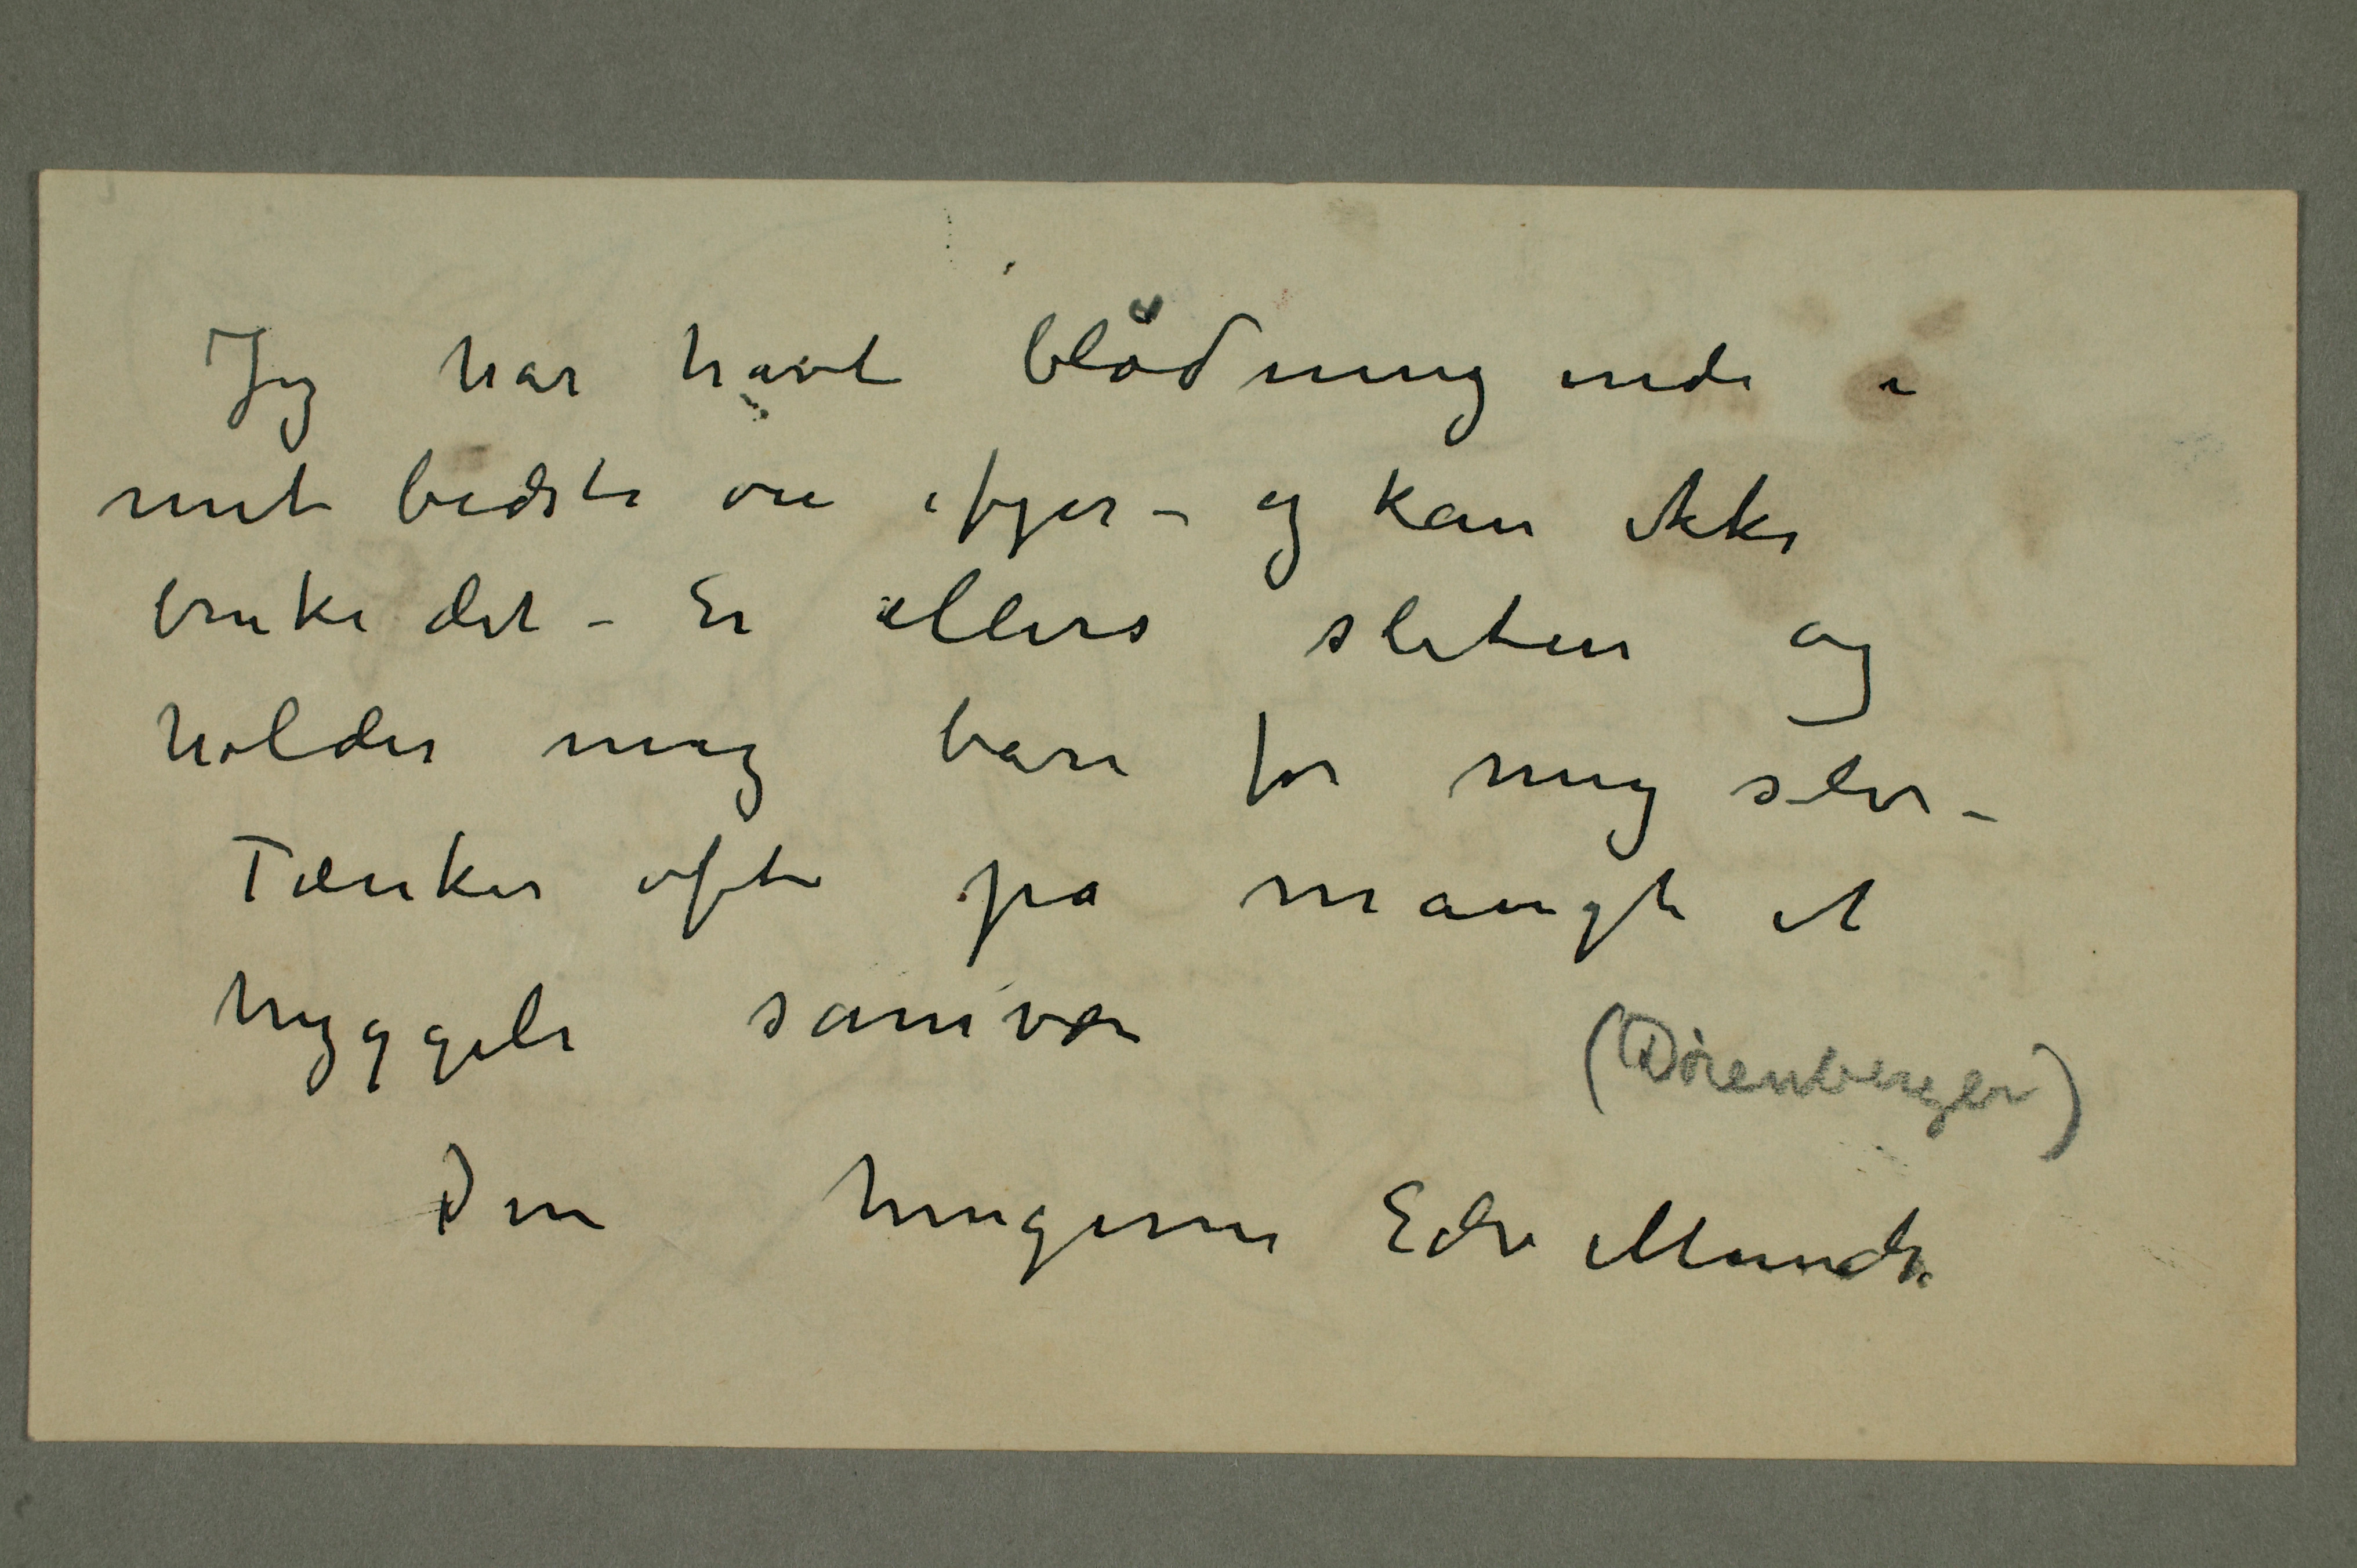 Jeg har havt blødning inde i
mit bedste øie ifjor – og kan ikke
bruke det – Er ellers sliten og
holder mig bare for mig selv –
Tænker ofte på mangt et
hyggeli samvær
(Dörenberger)
Din hengivne Edv Munch